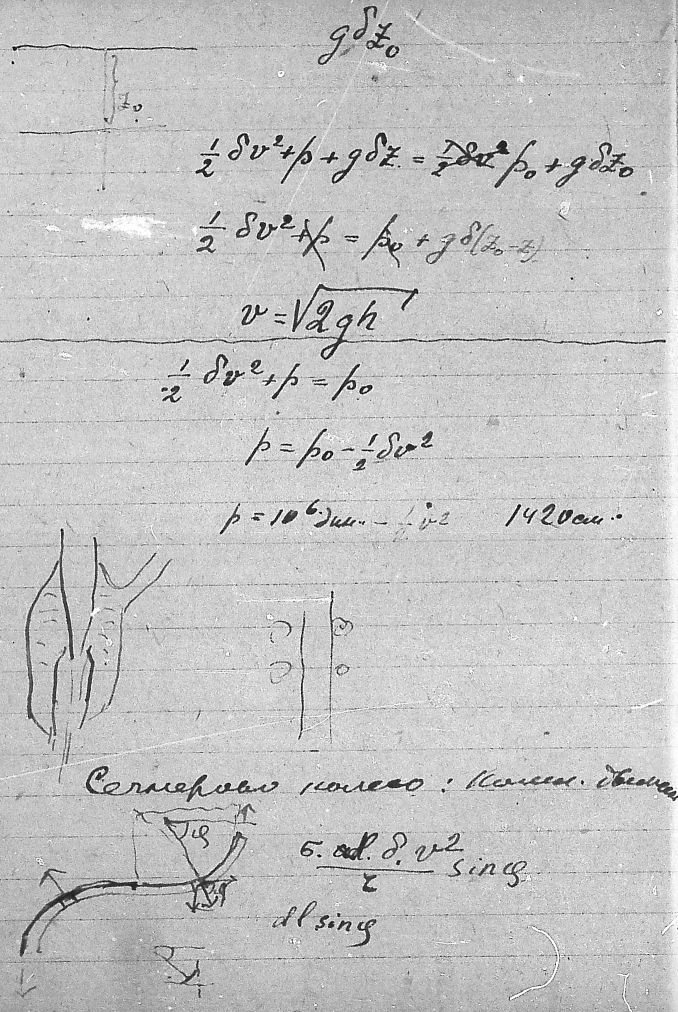 gδz₀
z₀
½ δv² + p + gδz = ½ δv² p₀ + gδz₀
½ δv² + p = p₀ + gδ(z₀ - z)
v = √2gh
½ δv² + p = p₀
p = p₀ - ½ δv²
p = 10⁶ дин. - ½ v² 1420 см.
Сегнерово колесо :
φ
δ. v² / r sin φ
φ
dl sin φ